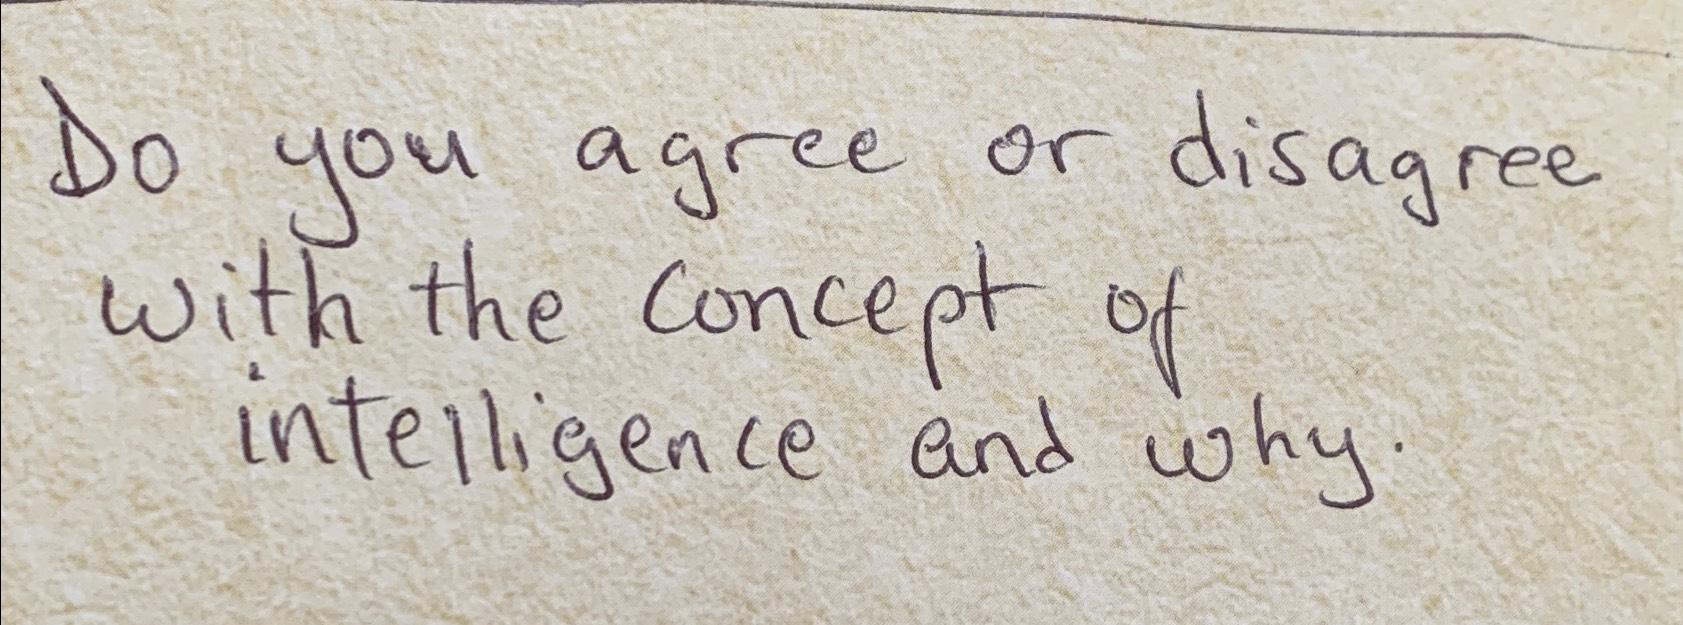 Do you agree or disagree
with the concept of
intelligence and why.